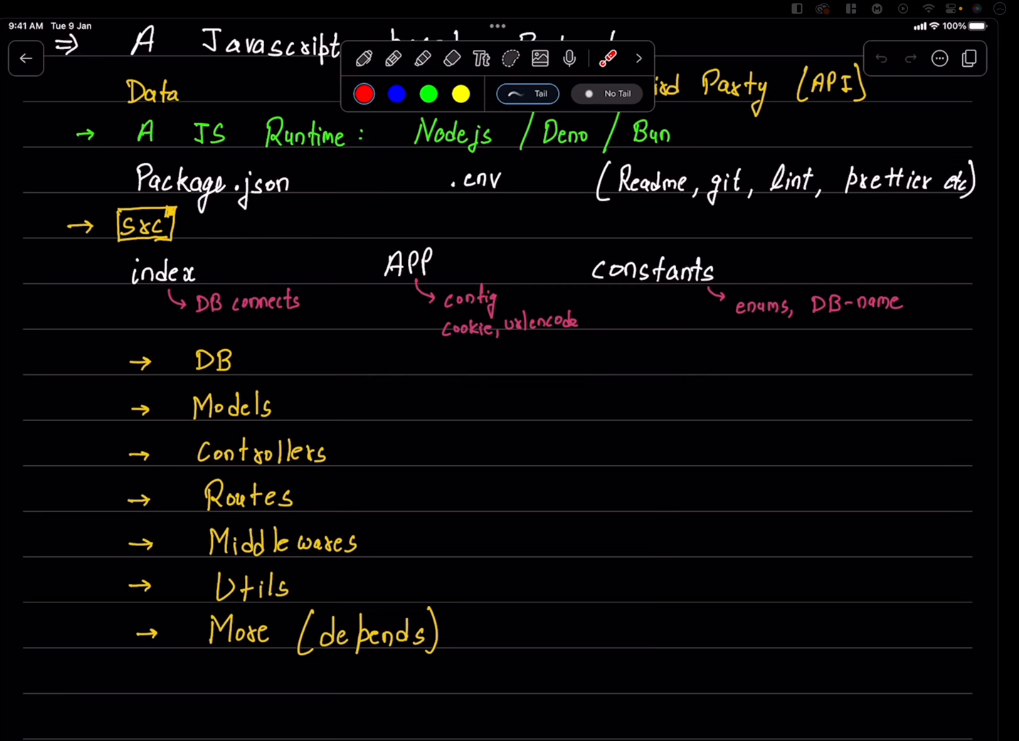 9:41 AM Tue 9 Jan 100%
⇒ A Javascript
Data Party (API)
Tail No Tail
→ A JS Runtime: Nodejs / Deno / Bun
Package.json .env (Readme, git, lint, prettier etc)
→ src
index APP constants
↳ DB connects ↳ config ↳ enums, DB-name
cookie, urlencode
→ DB
→ Models
→ Controllers
→ Routes
→ Middlewares
→ Utils
→ More (depends)